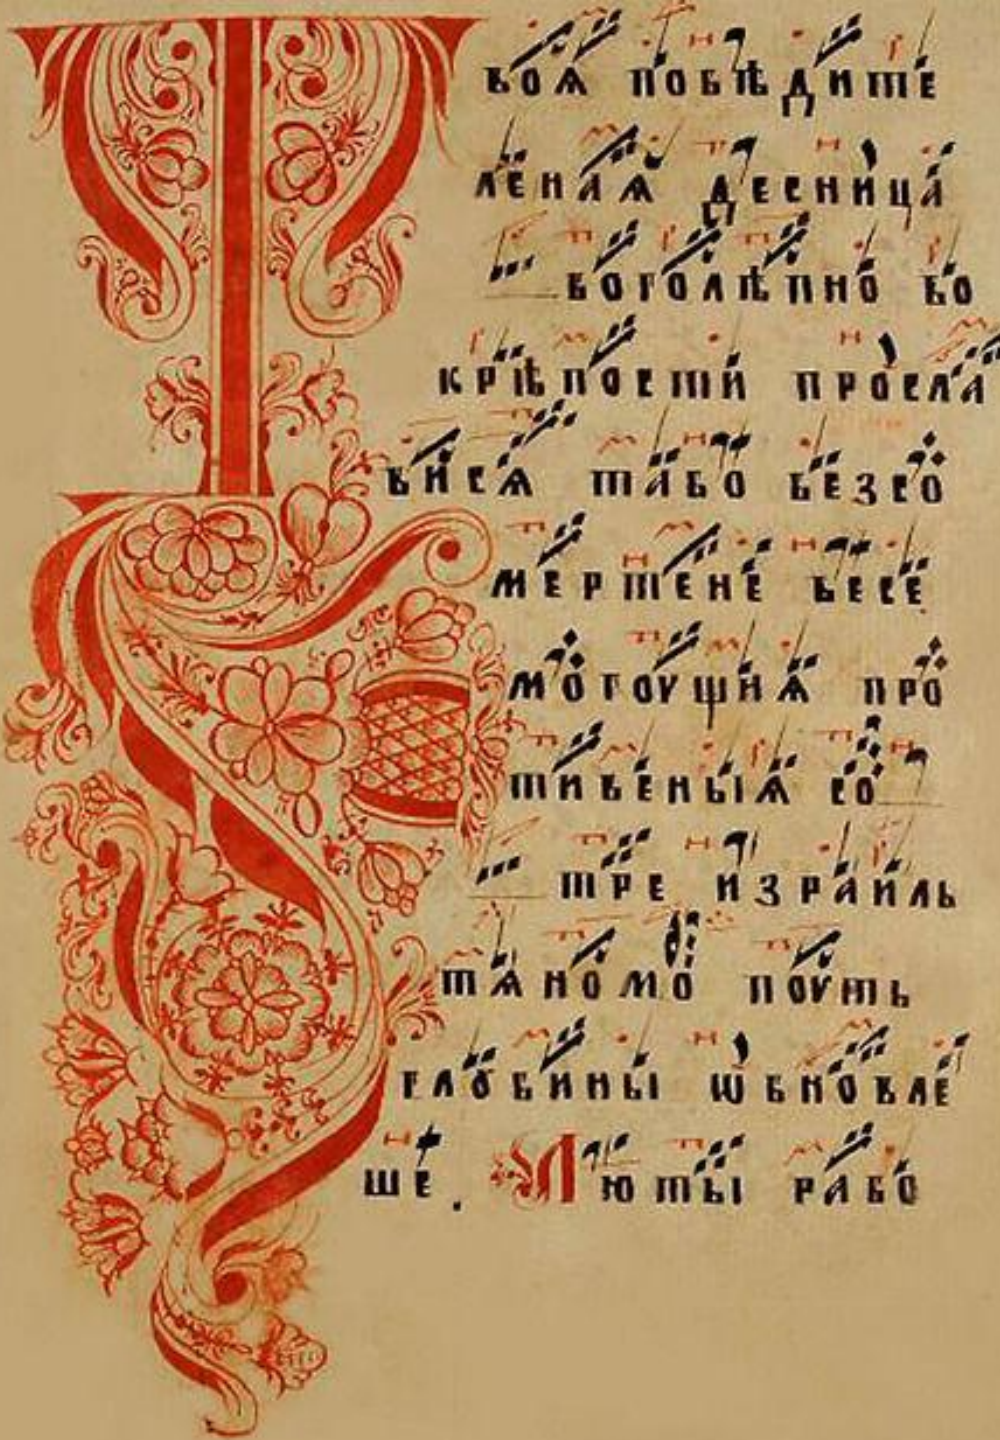 воѧ побѣдите
лѐнаѧ десница
боголѣпно во
крѣпости просла
висѧ та бо безсо
мертене весе
могоущиѧ про
тивеныѧ со
тре израиль
тѧномо поуть
глобины ѡбновле
ше. Лю ты рабо